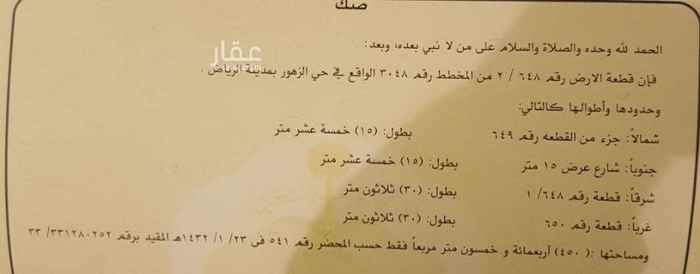 صك
الحمد لله وحده والصلاة والسلام على من لا نبي بعده، وبعد:
فإن قطعة الارض رقم ٦٤٨ / ٢ من المخطط رقم ٣٠٤٨ الواقع في حي الزهور بمدينة الرياض .
وحدودها وأطوالها كالتالي:
شمالاً: جزء من القطعه رقم ٦٤٩ بطول: (١٥) خمسة عشر متر
جنوباً: شارع عرض ١٥ متر بطول: (١٥) خمسة عشر متر
شرقاً: قطعة رقم ٦٤٨/ ١ بطول: (٣٠) ثلاثون متر
غرباً: قطعة رقم ٦٥٠ بطول: (٣٠) ثلاثون متر
ومساحتها :( ٤٥٠) أربعمائة و خمسون متر مربعاً فقط حسب المحضر رقم ٥٤١ في ٢٣/ ١/ ١٤٣٢هـ المقيد برقم ٣٣١٢٨٠٢٥٢/ ٣٣
عقار